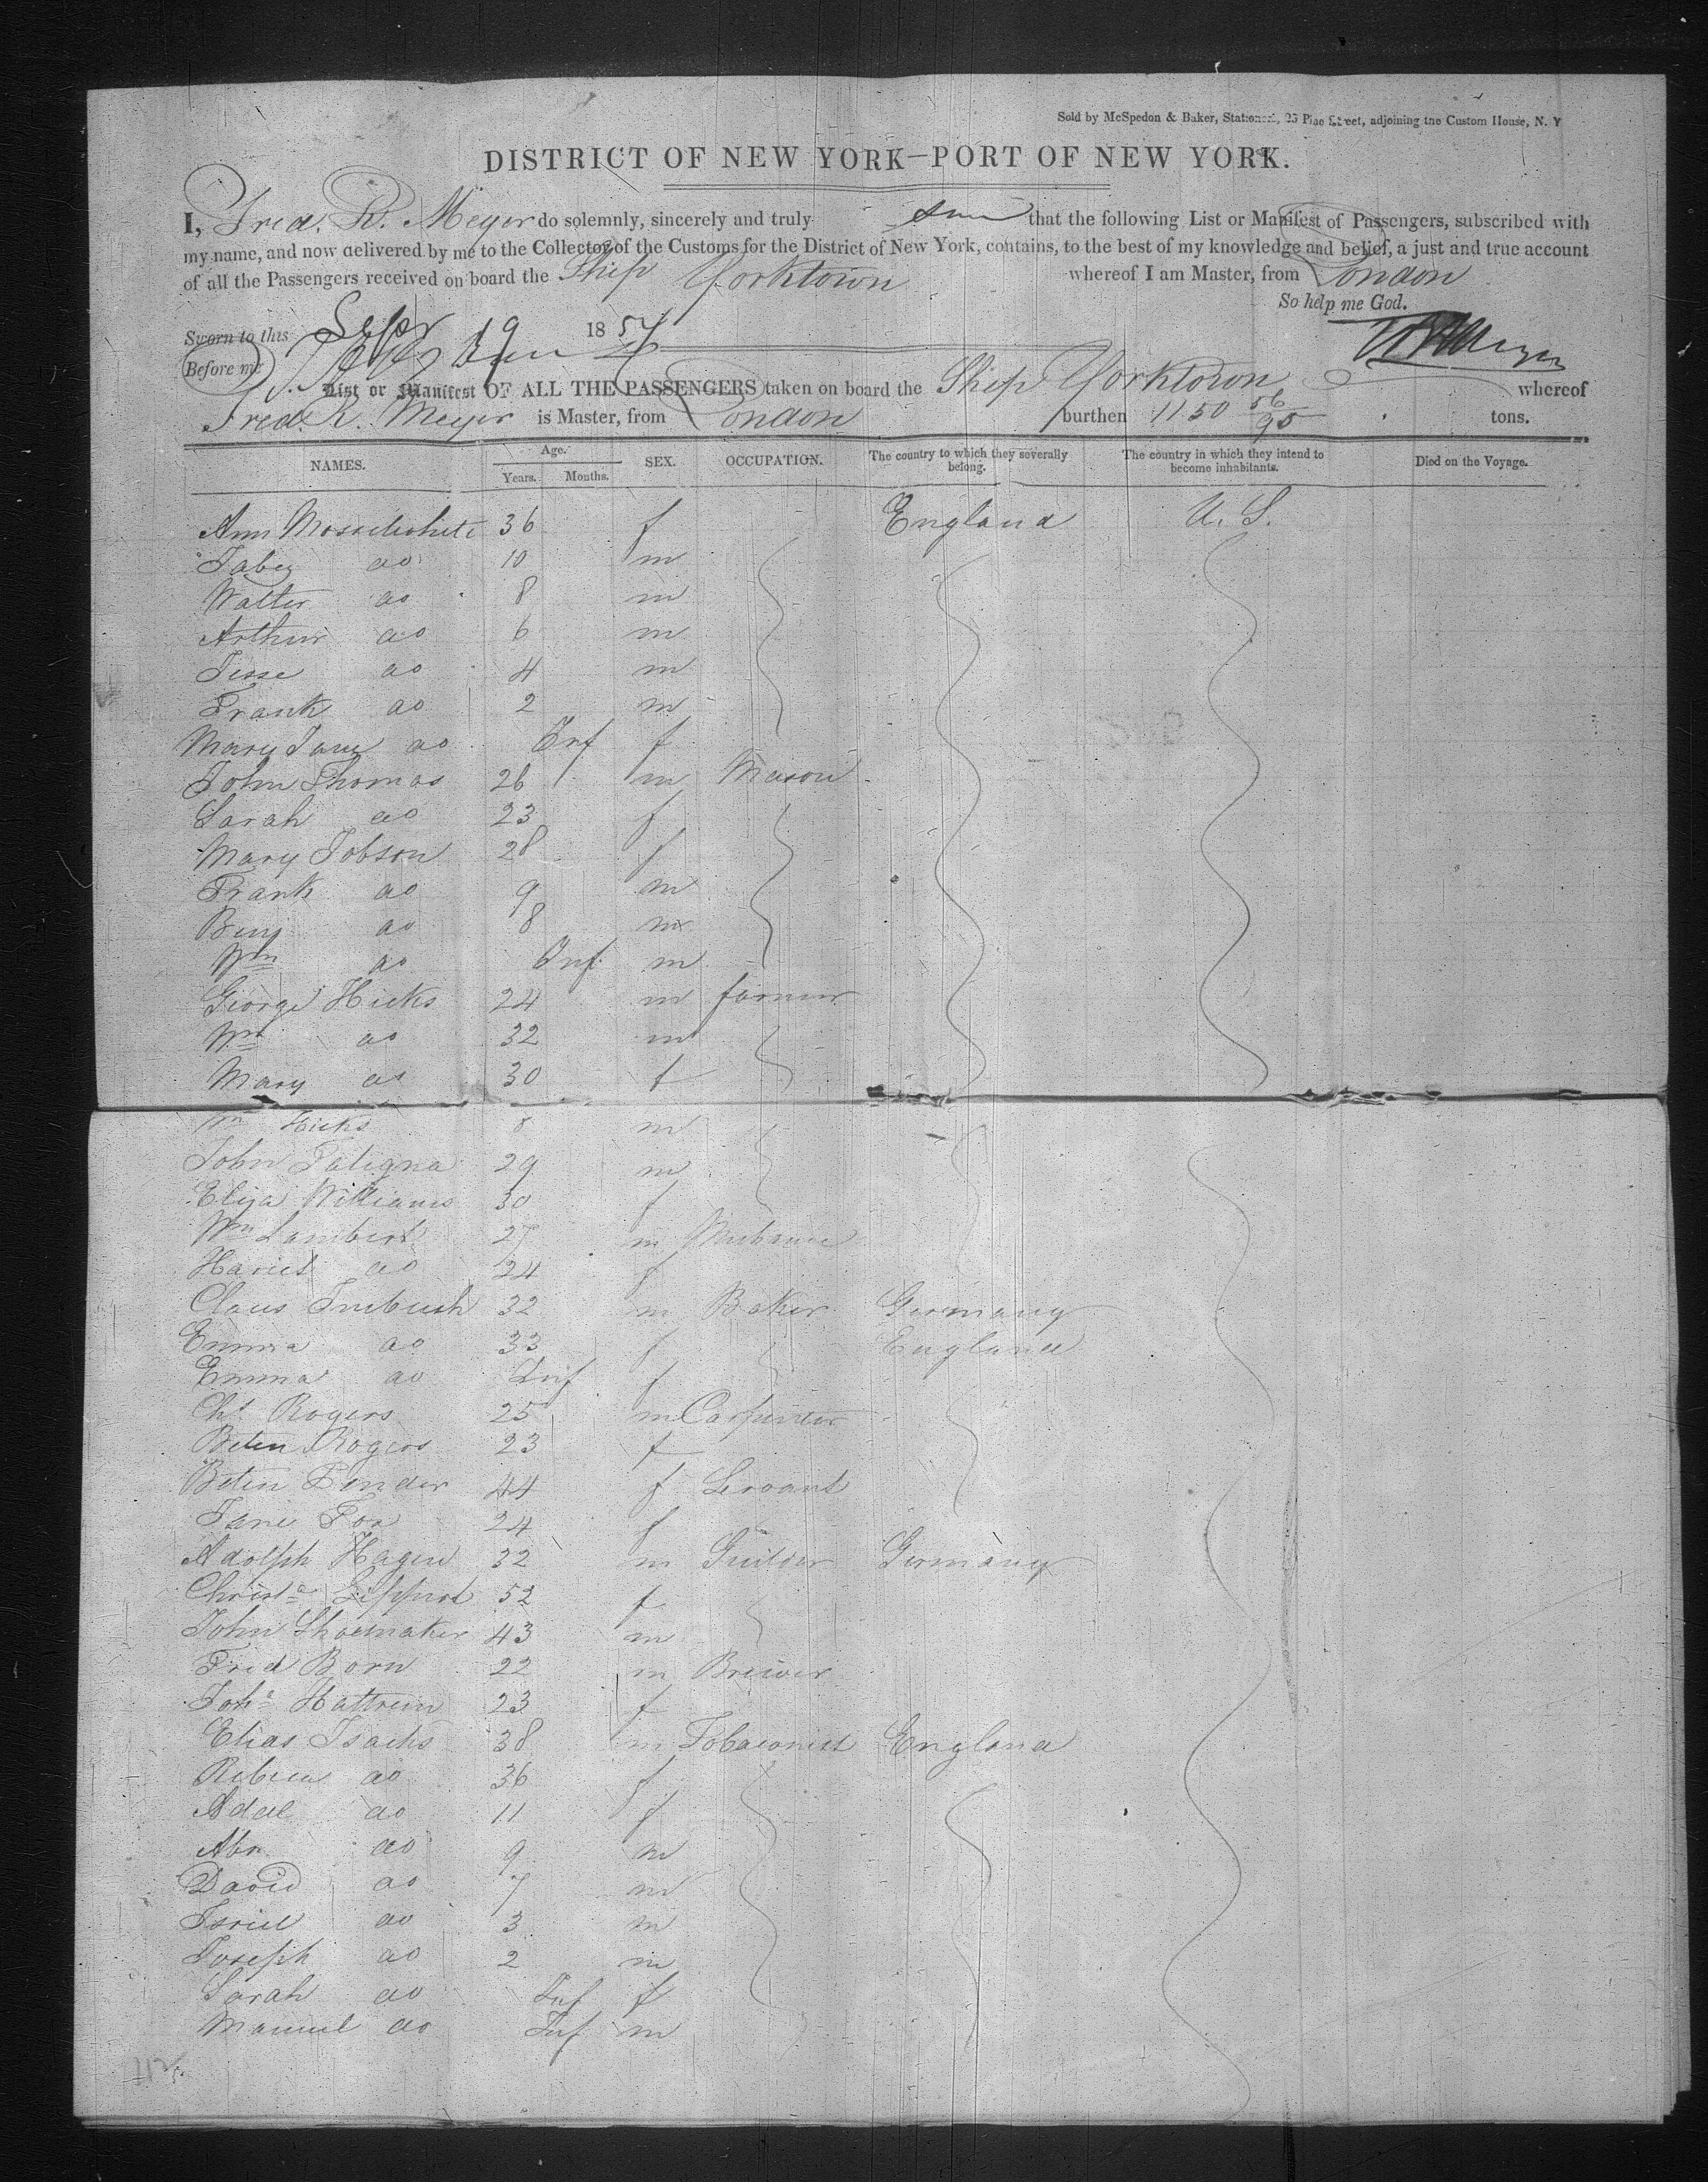 Sold by McSpedon & Baker, Stationers, 25 Pine Street, adjoining the Custom House, N. Y
DISTRICT OF NEW YORK—PORT OF NEW YORK.
I, Fred. R. Meyer do solemnly, sincerely and truly that the following List or Manifest of Passengers, subscribed with
my name, and now delivered by me to the Collector of the Customs for the District of New York, contains, to the best of my knowledge and belief, a just and true account
of all the Passengers received on board the Ship Yorktown whereof I am Master, from London
So help me God.
Sworn to this Sepr 19 1854
Before me
List or Manifest OF ALL THE PASSENGERS taken on board the Ship Yorktown whereof
Fred. R. Meyer is Master, from London burthen 1150 56/95 tons.
NAMES. Age. Years. Months. SEX. OCCUPATION. The country to which they severally belong. The country in which they intend to become inhabitants. Died on the Voyage.
Ann 36 f England U. S.
Jabez do 10 m
Walter do 8 m
Arthur do 6 m
Jesse do 4 m
Frank do 2 m
Mary Jane do Inf f
John Thomas 26 m Mason
Sarah do 23 f
Mary Jobson 28 f
Frank do 9 m
Benj do 8 m
Wm do Inf m
George Hicks 24 m farmer
Wm do 32 m
Mary do 30 f
Wm Hicks 8 m
John 29 m
Eliza Williams 30 f
Wm Lambert 27 m Mechanic
Hariet do 24 f
Claus 32 m Baker Germany
Emma do 33 f England
Emma do Inf f
Chs Rogers 25 m Carpenter
Rogers 23 f
Pender 44 f Servant
Jane Fox 24 f
Adolph Hagen 32 m Germany
Christa Lippert 52 f
John Shoemaker 43 m
Fred Born 22 m Brewer
Joha 23 f
Elias Isacks 38 m Tobaconist England
Rebeca do 36 f
Adel do 11 f
Abr do 9 m
David do 7 m
Isriel do 3 m
Joseph do 2 m
Sarah do Inf f
Manuel do Inf m